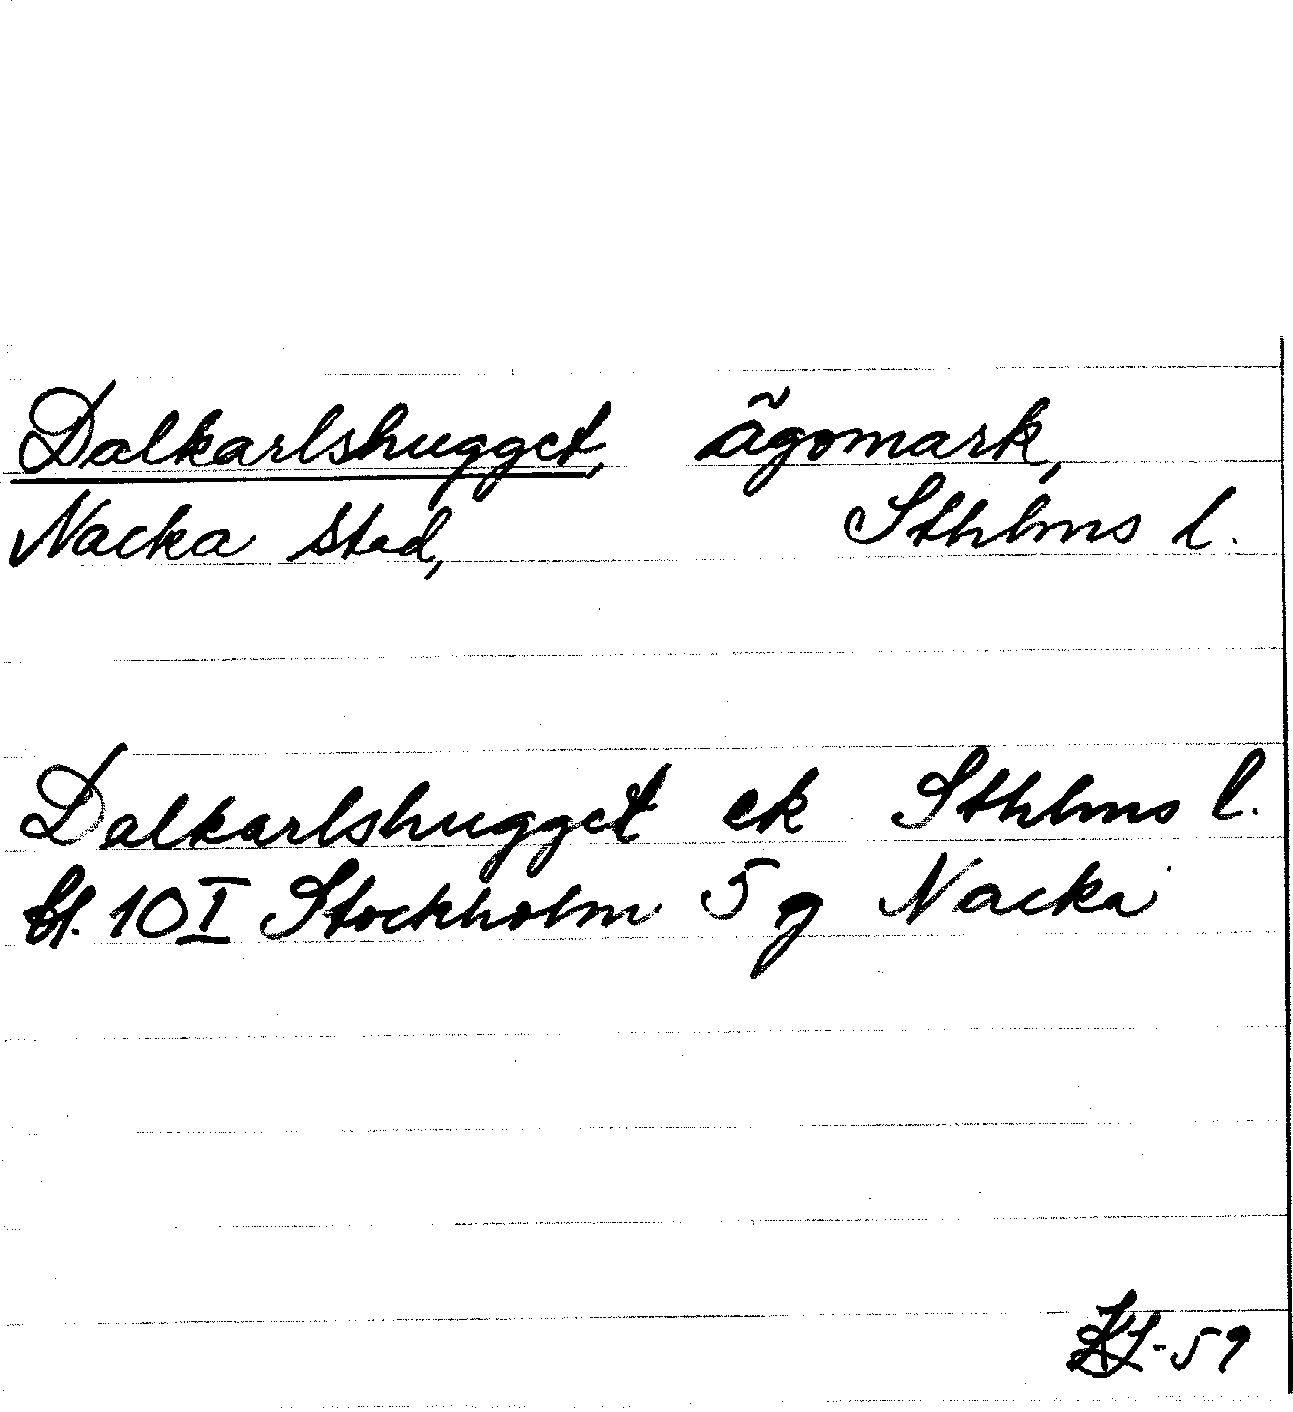 Dalkarlshugget, ägomark,
Nacka stad, Sthlms l.
Dalkarlshugget ek Sthlms l.
bl. 10 I Stockholm 5 g Nacka
-59